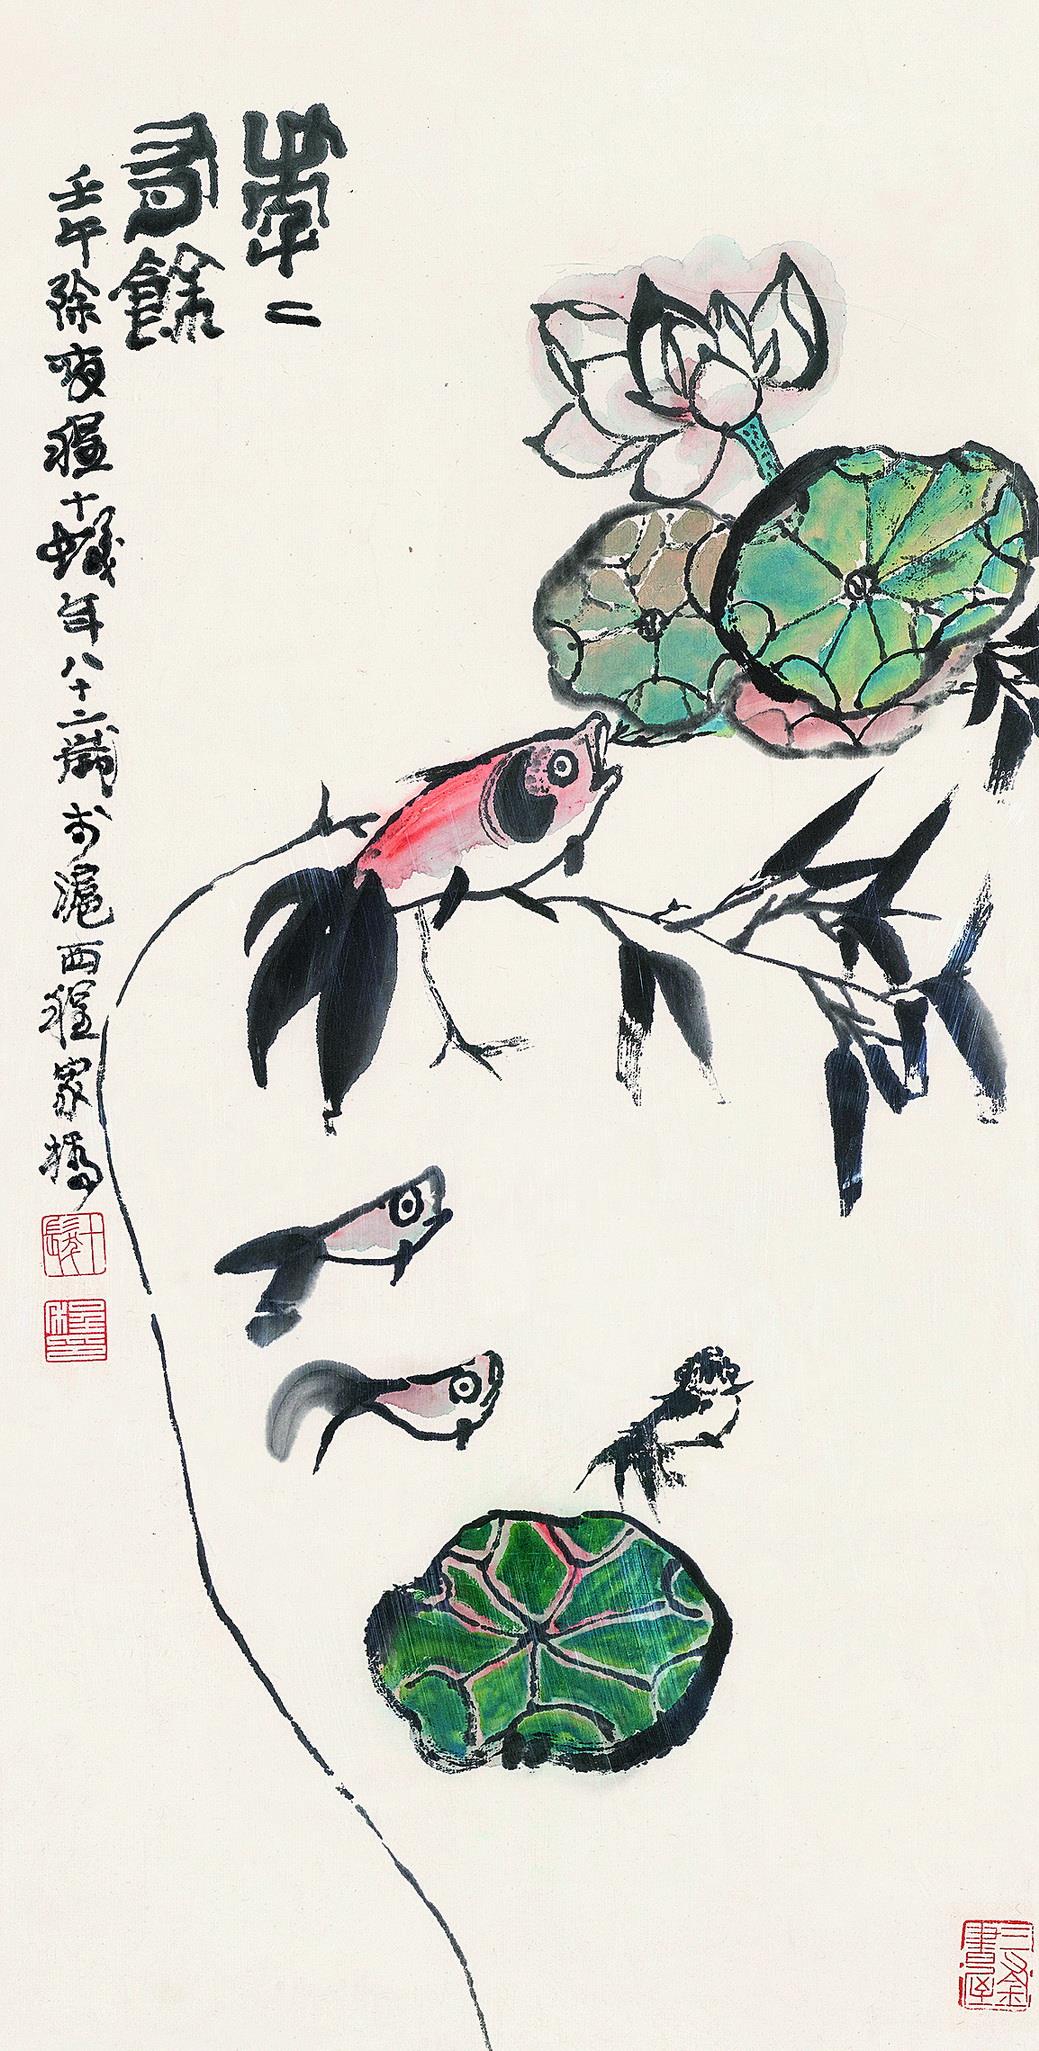 秊〻
有餘
壬午除夜程十髮年八十二歲於滬西程家橋
十髮
三釜書屋